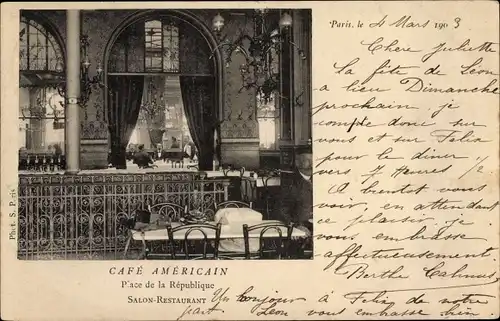 Paris, le 4 Mars 1903
Chere Juliette
La fête de Léon
a lieu Dimanche
prochain je
compte donc sur
vous et sur Felix
pour le diner
vers 7 Heures
A bientot vous
voir, en attendant
ce plaisir je
vous embrasse
affectueusement.
Berthe Cahmus
Phot. S. P.
CAFÉ AMÉRICAIN
Place de la République
SALON-RESTAURANT
Un bonjour à Felix de notre
part. Léon vous embrasse bien.